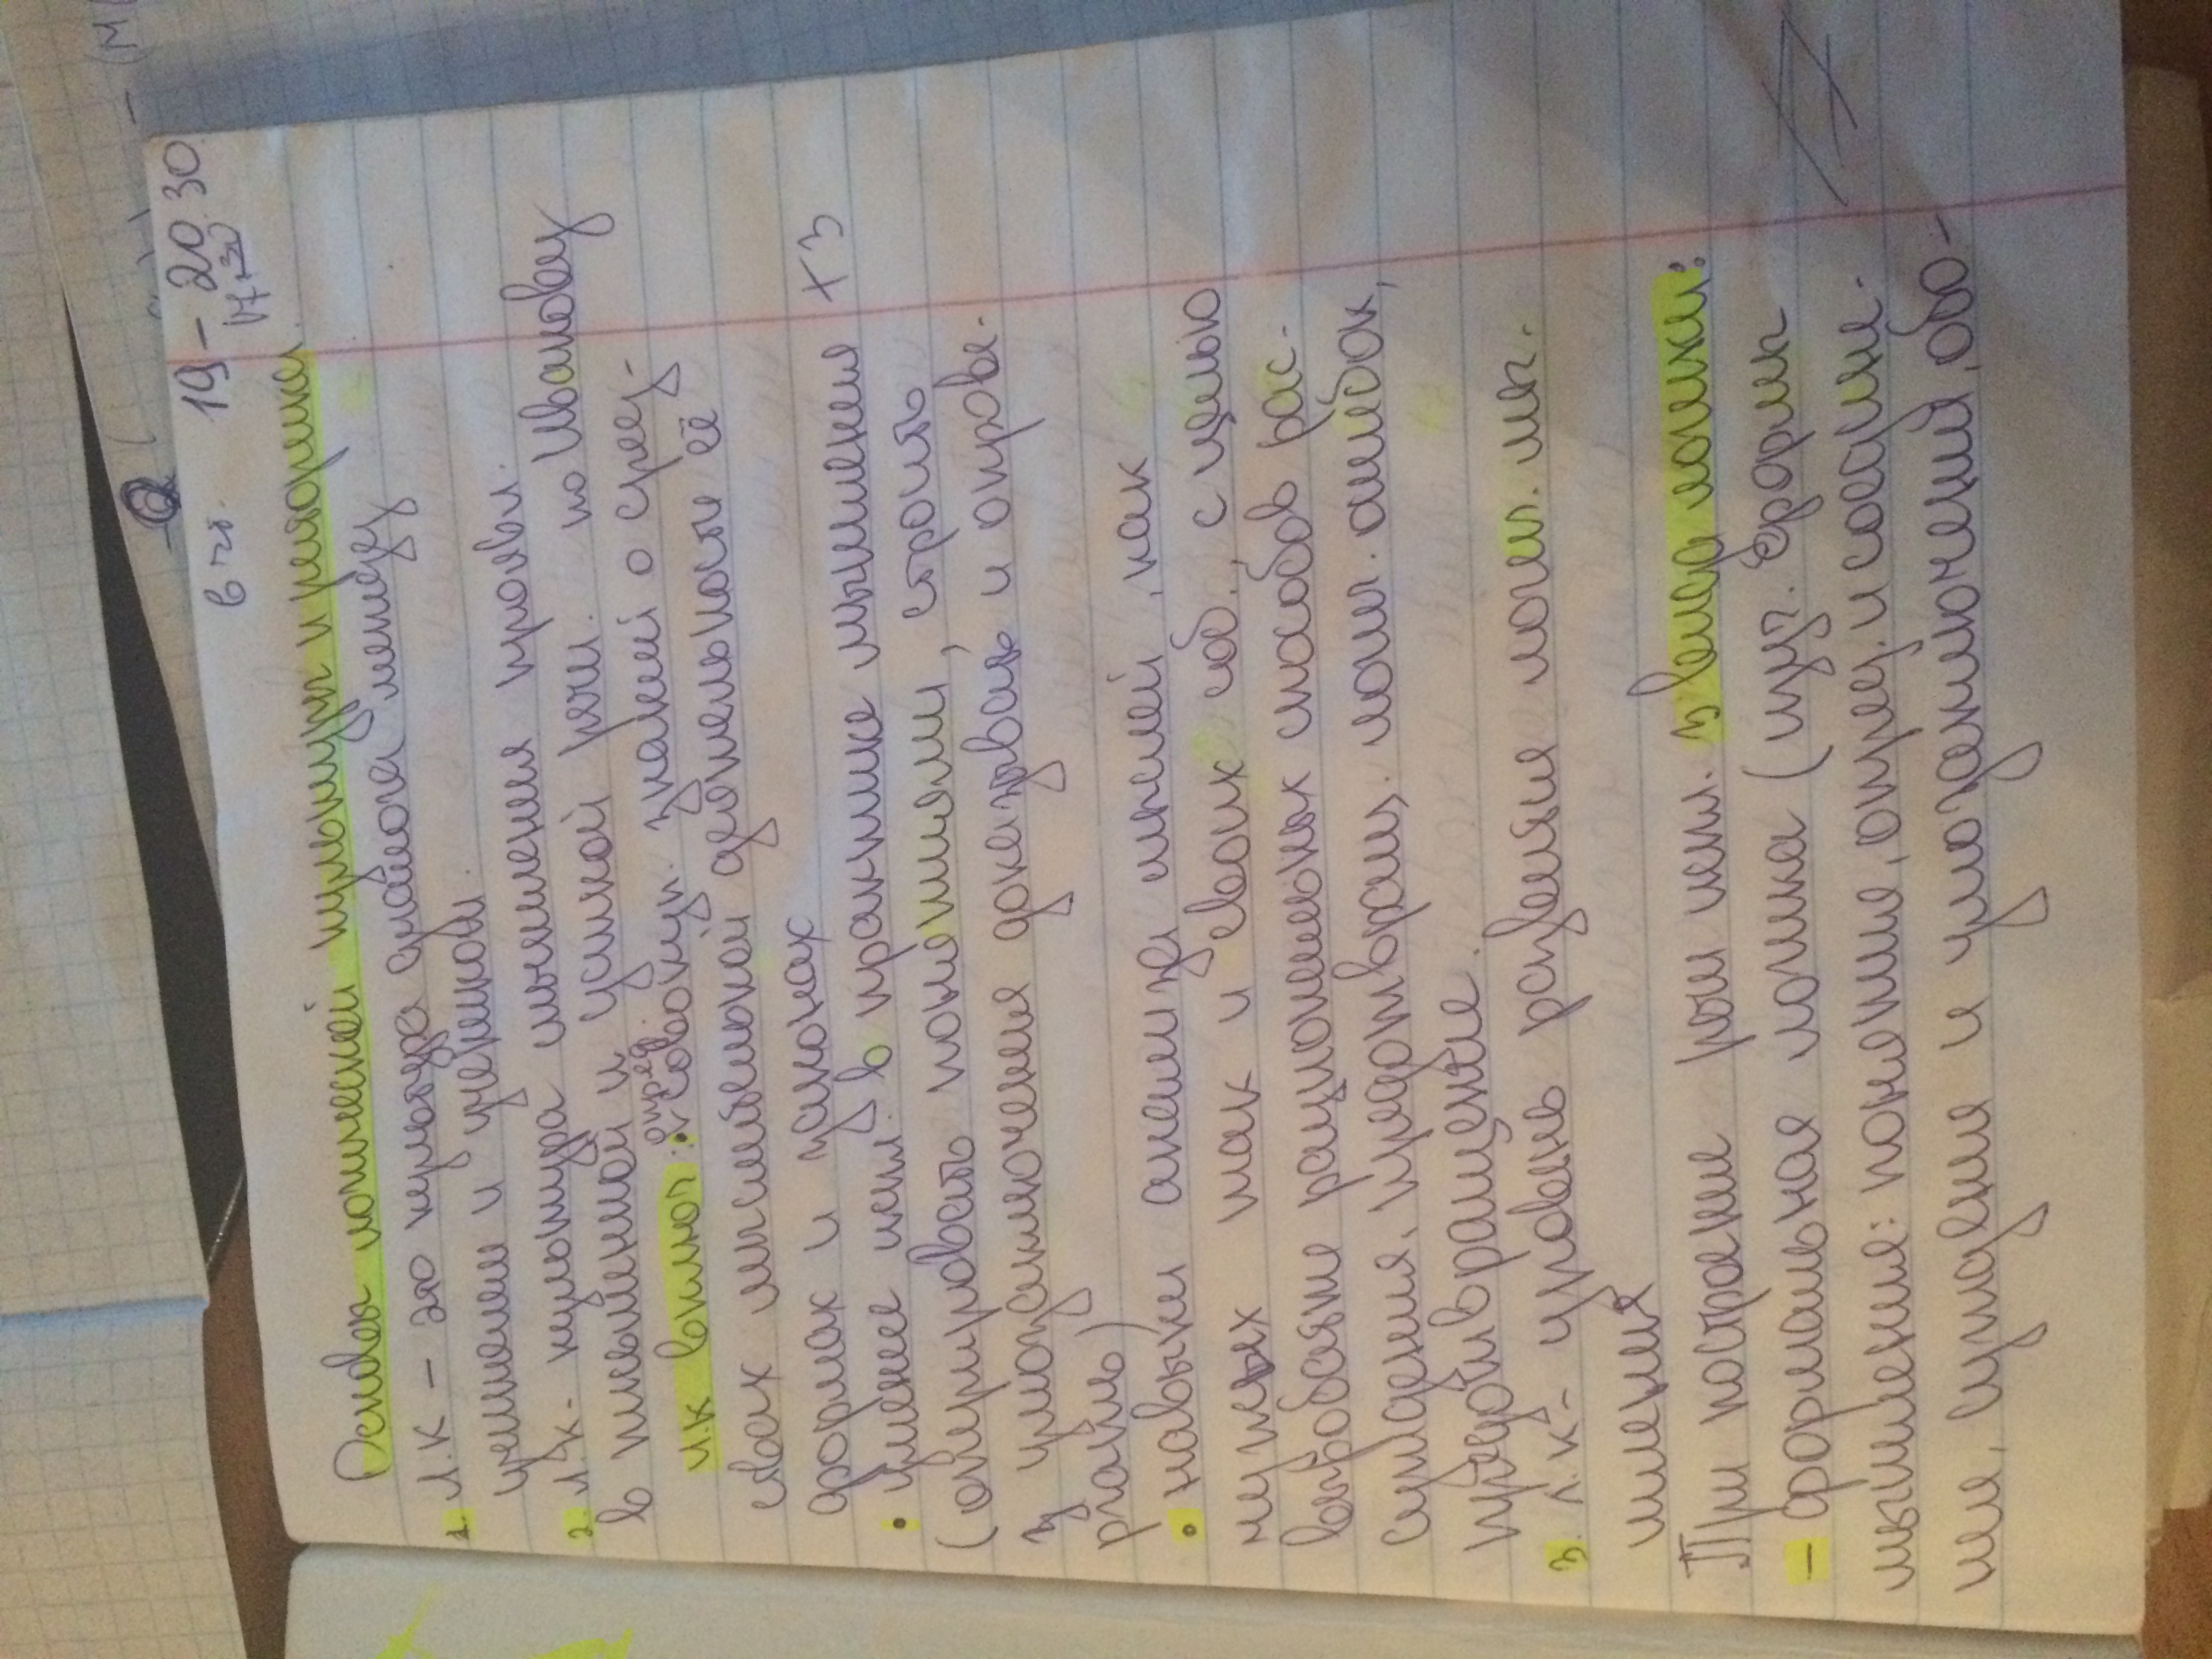 в чт. 19 – 20.30
17.30
Основы логической культуры и риторики.
1. Л.К – это культура диалога между
учителем и учеником.
2. Л.К - культура мышления проявл.
в письменной и устной речи. по Иванову
л.к включ: • опред. совокуп. знаний о сред-
ствах мыслительной деятельности её
формах и законах
• умение испл. в практике мышления + 3
(оперировать понятиями, строить
з умозаключения доказывать и опрове-
ргать)
• навыки анализа мыслей, как
чужых так и своих соб., с целью
выработке рациональных способов рас-
суждения, предотвращ. логич. ошибок,
предотвращение.
3. л.к – уровень развития логич. мы-
шления
При построение речи испл. 3 вида логики:
– формальная логика (изуч. формы
мышления: понятия, опред. и соедине-
ния, суждения и умозаключения, обо-